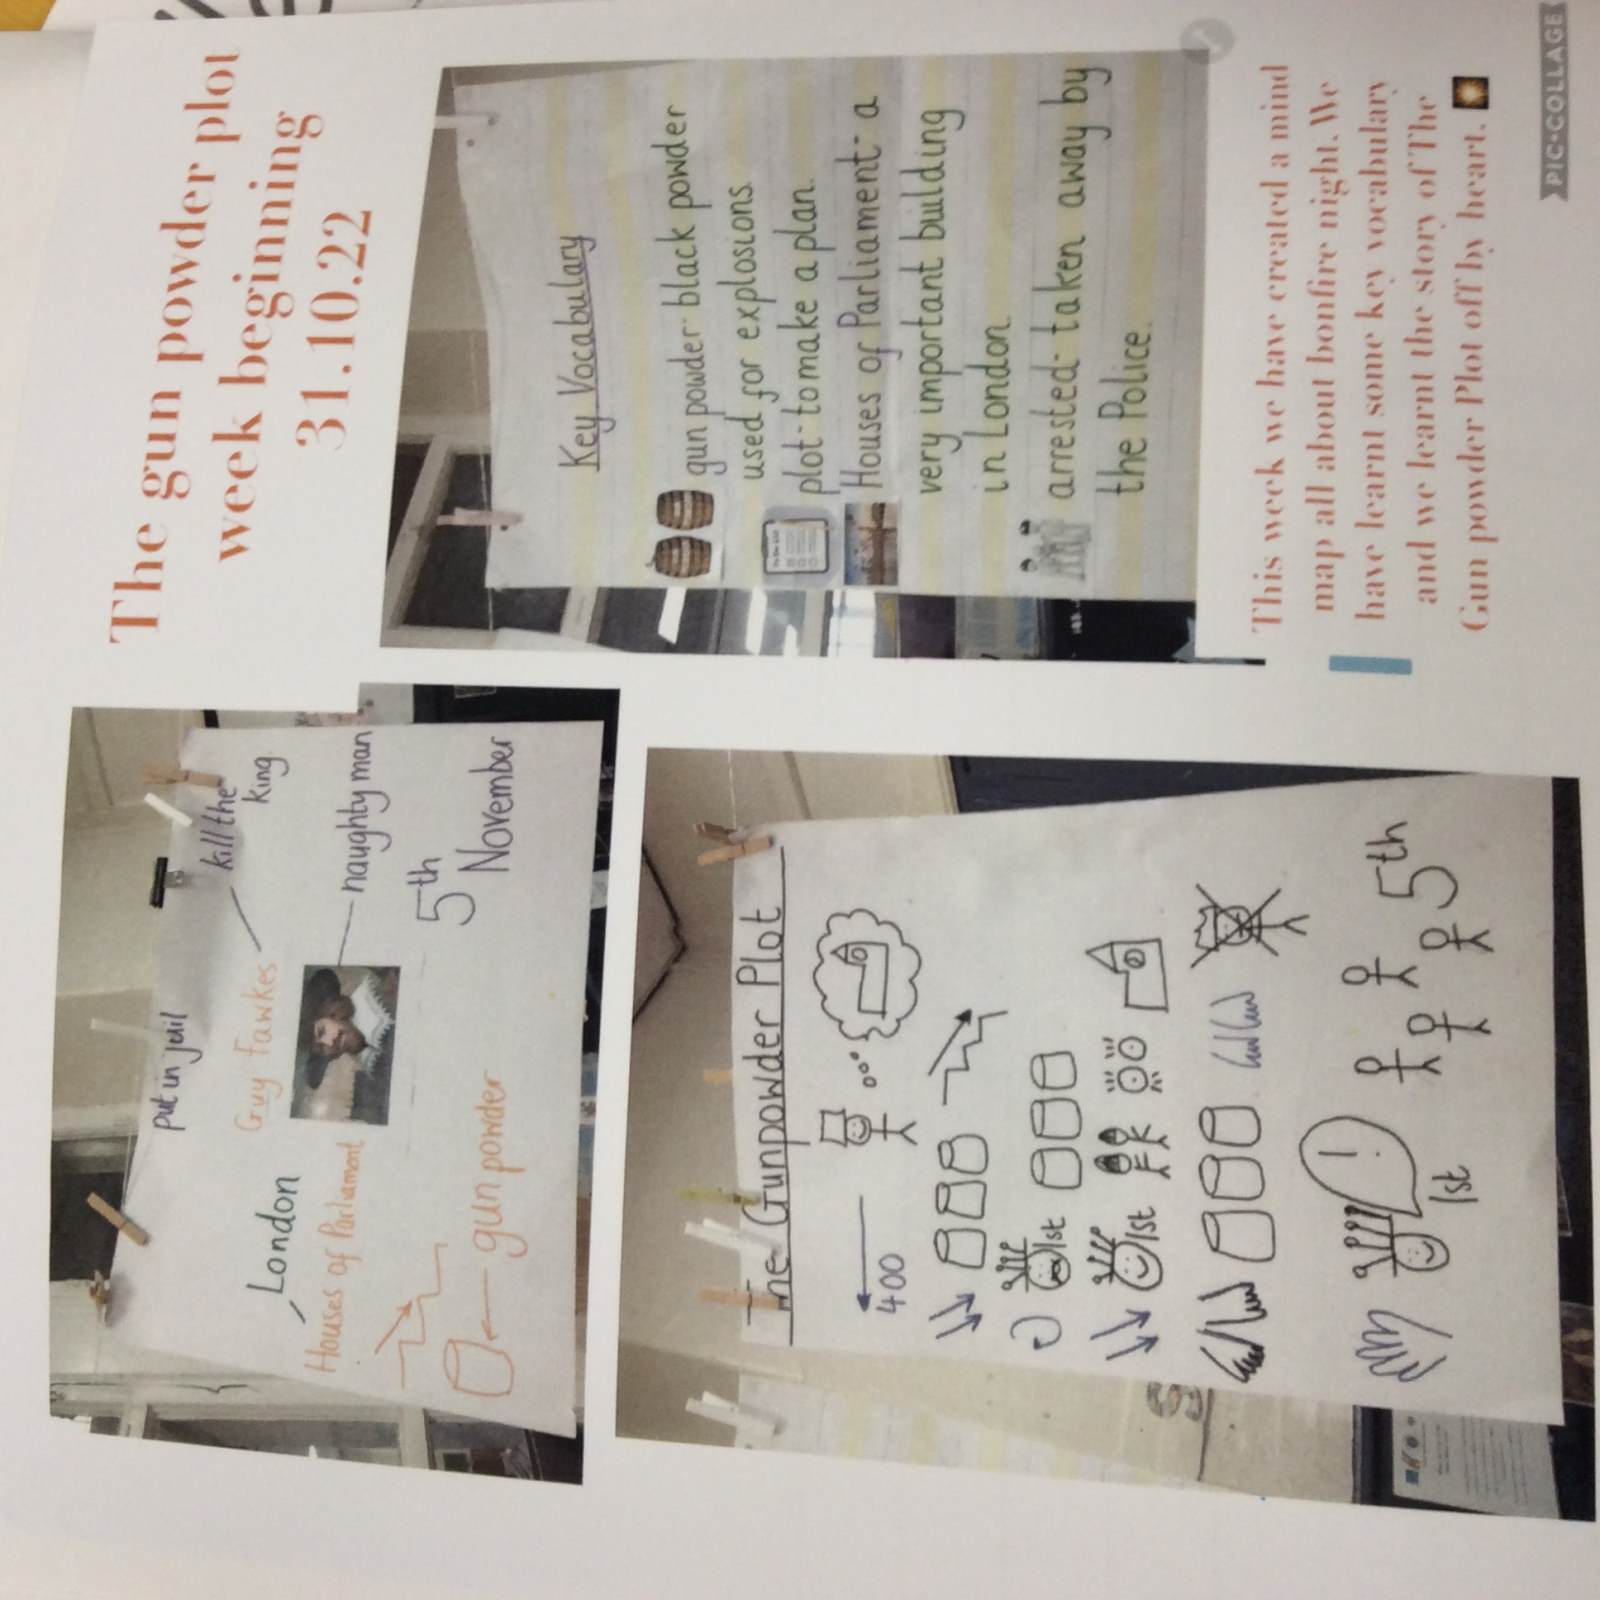 The gun powder plot
week beginning
31.10.22
put in jail
kill the
king
London
Guy Fawkes
Houses of Parliament
naughty man
gun powder
5th
November
Key Vocabulary
gun powder- black powder
used for explosions.
plot- to make a plan.
Houses of Parliament- a
very important building
in London.
arrested- taken away by
the Police.
The Gunpowder Plot
400
1st
1st
!
1st
5th
This week we have created a mind
map all about bonfire night. We
have learnt some key vocabulary
and we learnt the story of The
Gun powder Plot off by heart.
PIC•COLLAGE